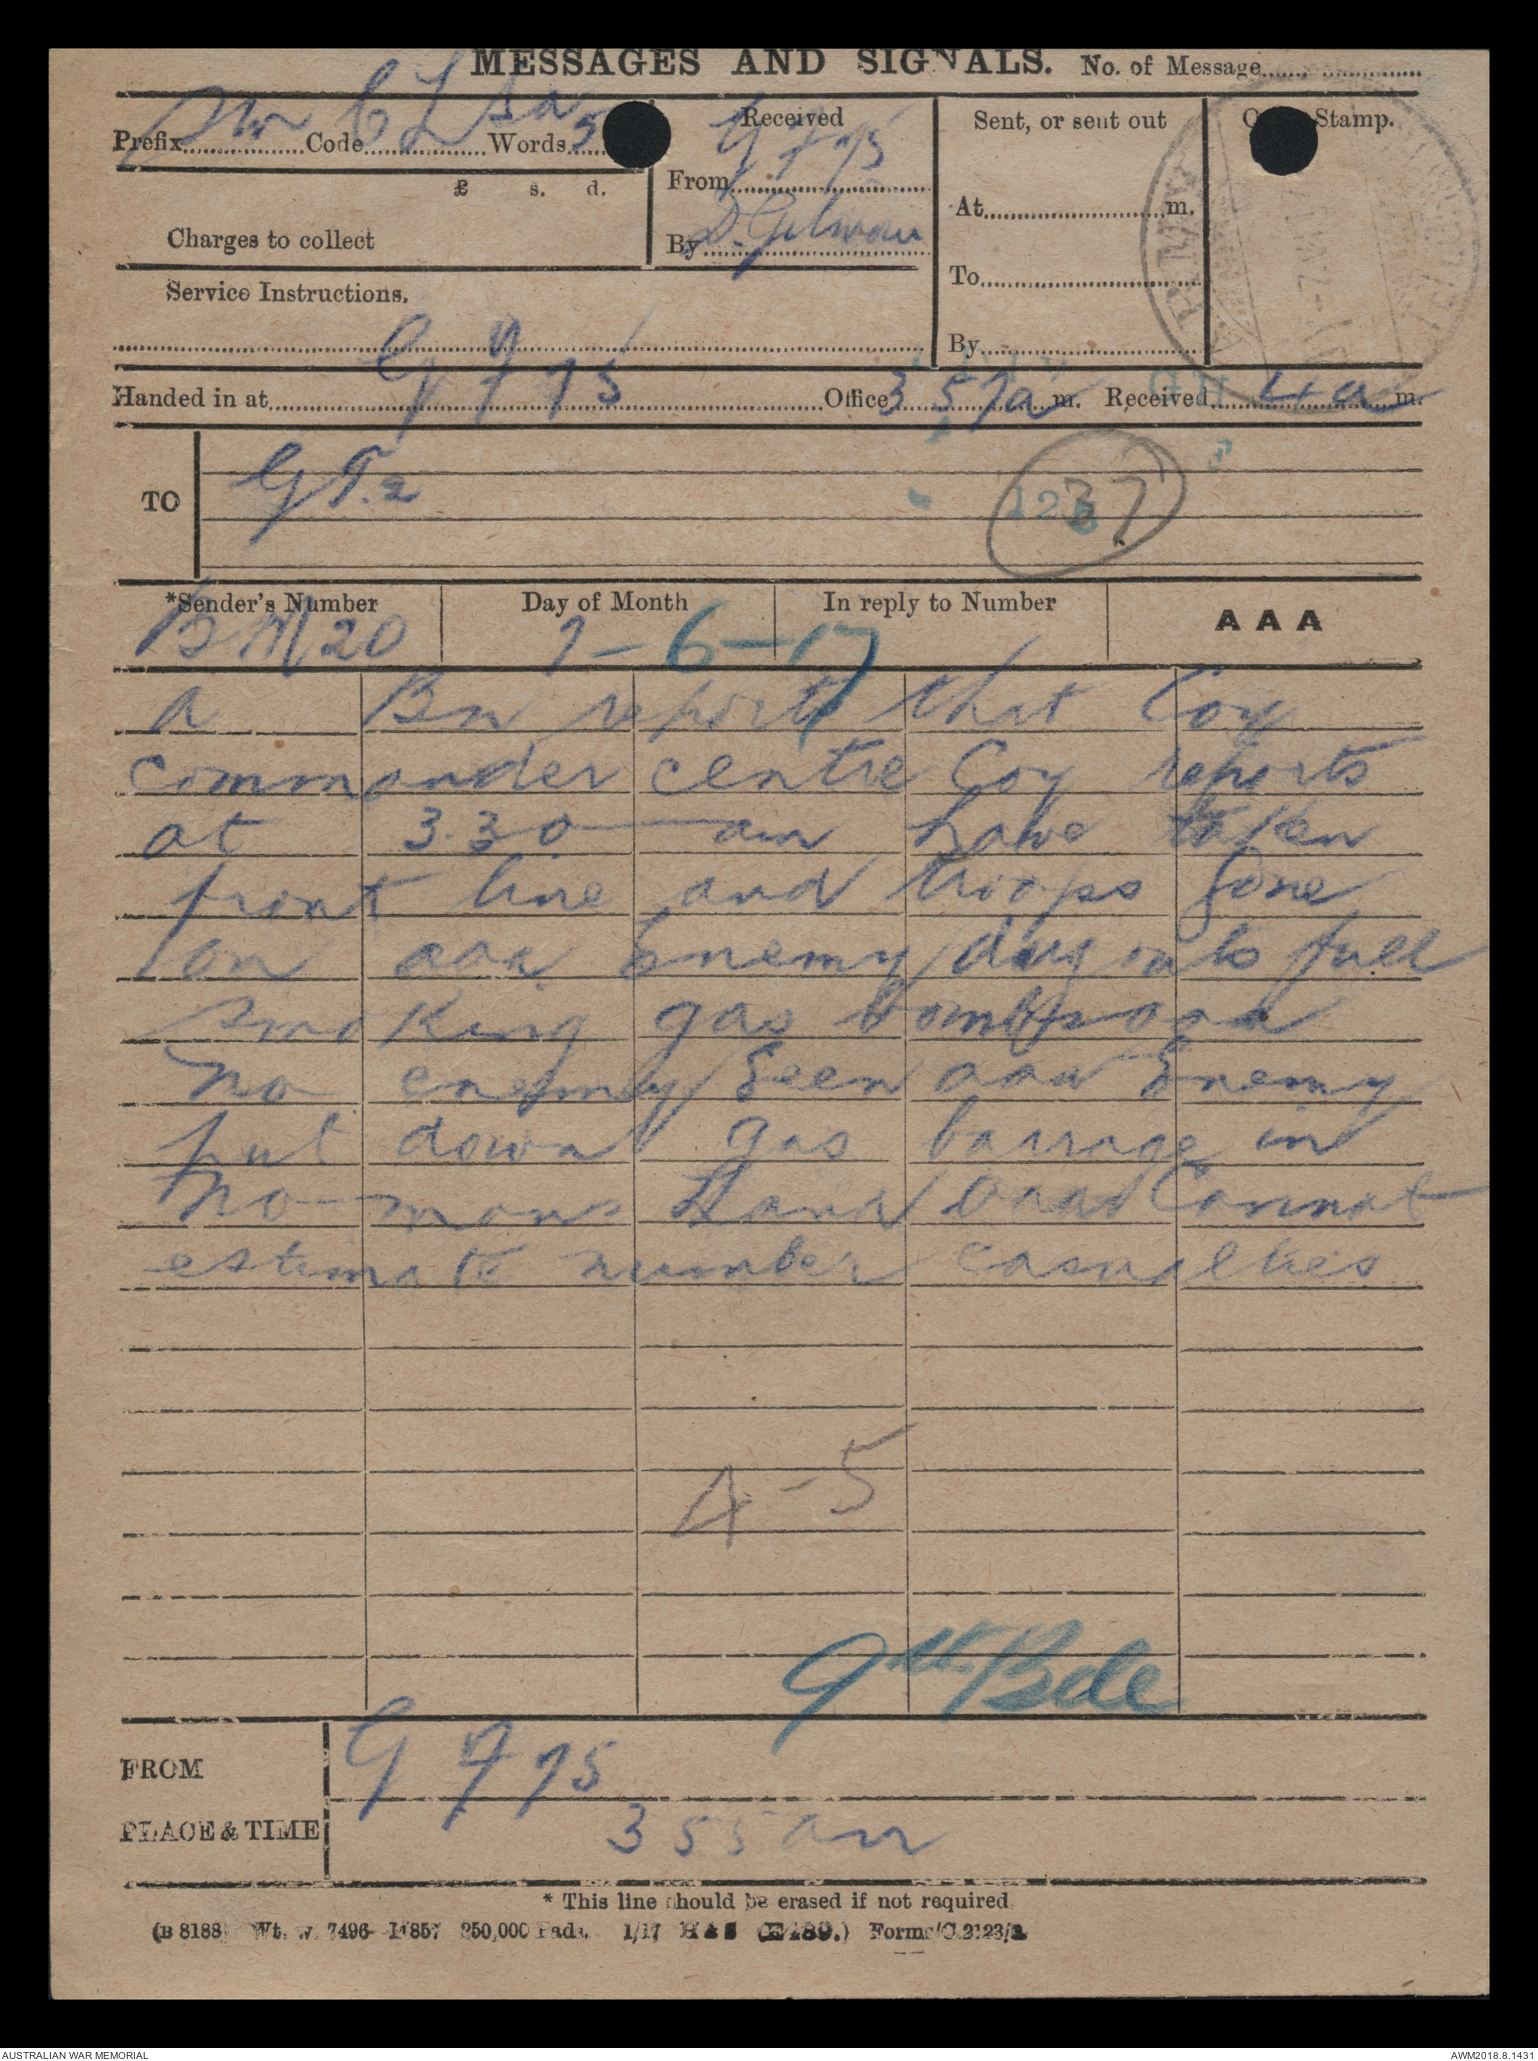 MESSAGES AND SIGNALS. No. of Message
Prefix Sm Code Words
Received
From G 9 75
By D. Gilmour
Sent, or sent out
At m.
To
By
Stamp.
£ s. d.
Charges to collect
Service Instructions.
G 9 75
Handed in at Office 3 57 a m. Received 4 a m.
TO
G T.2
37
*Sender's Number Day of Month In reply to Number
AAA
BM 20 7-6-17
A Bn reports that Coy
commander centre Coy reports
at 3.30 am have taken
front line and troops gone
on aaa Enemy full
smoking gas bombs aaa
No enemy seen aaa Enemy
put down gas barrage in
No-mans Land aaa Cannot
estimate number casualties
A-5
9th Bde
FROM
G 9 75
PLACE & TIME
3 55 am
* This line should be erased if not required
(B 8188) Wt. W. 7496- 250,000 Pads. 1/17 H & S Forms/C.2123/
AUSTRALIAN WAR MEMORIAL
AWM2018.8.1431